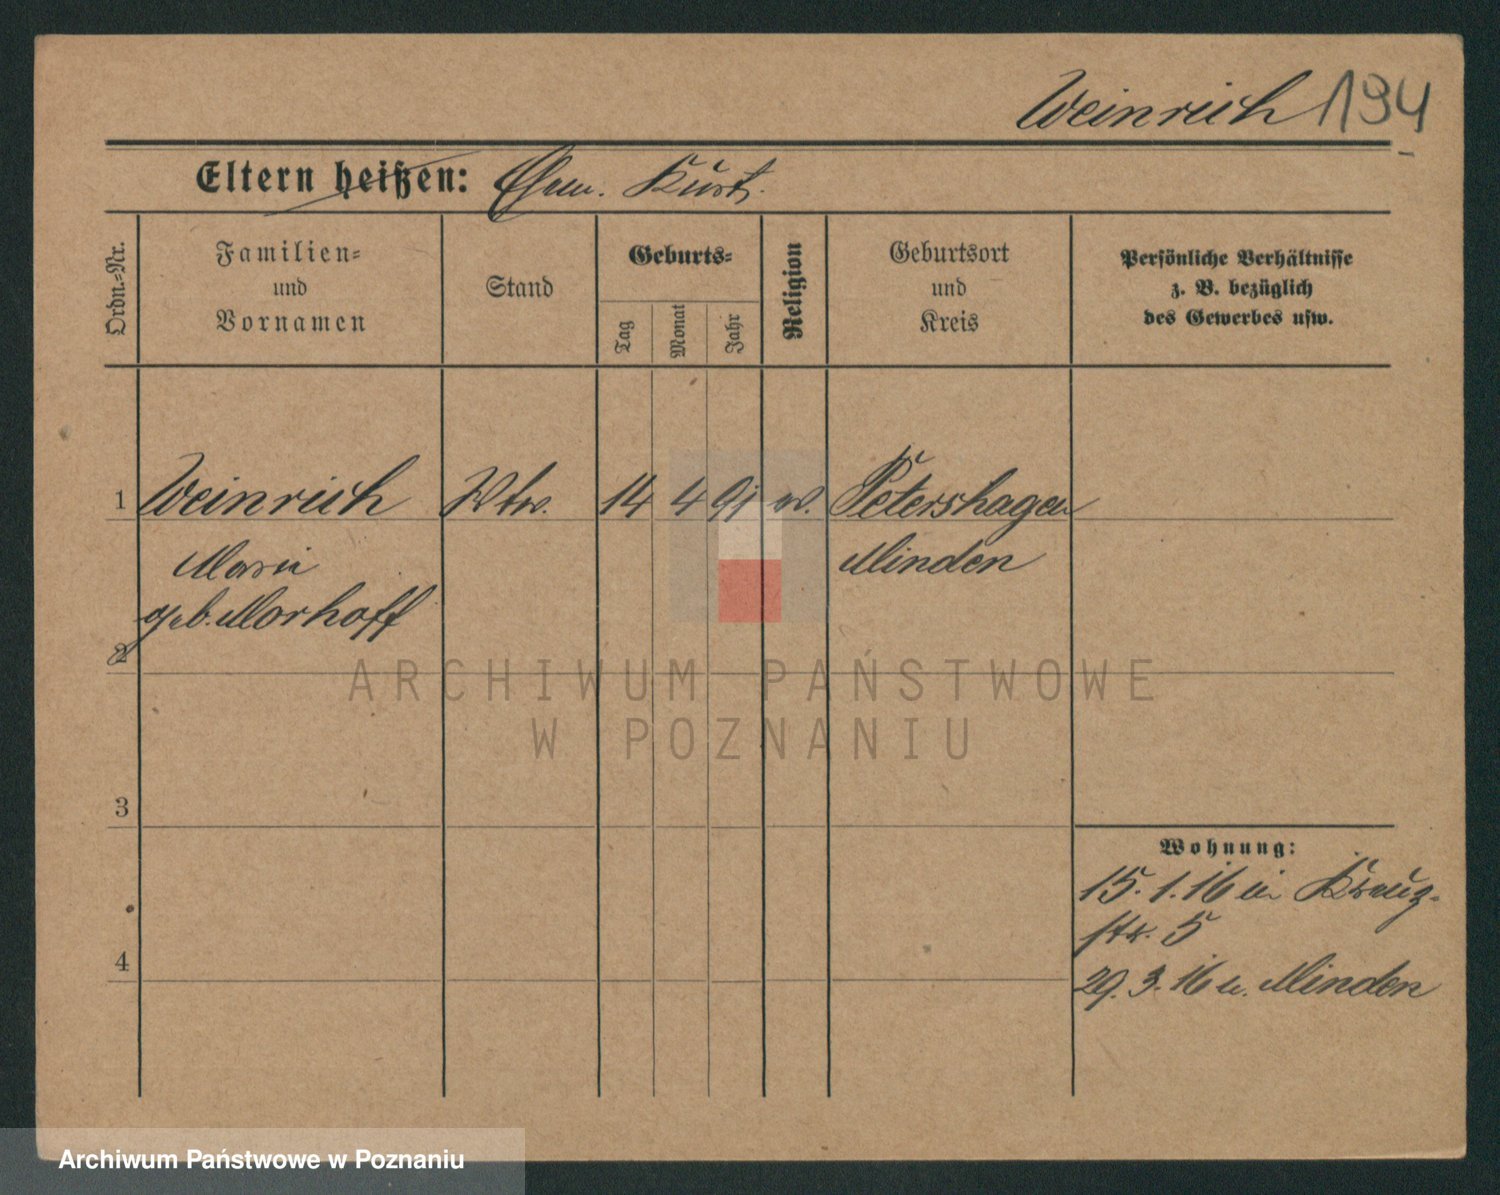 Weinrich 194
Eltern heißen: Ehem. Kurt.
Ordn.-Nr.
Familien-
und
Vornamen
Stand
Geburts-
Tag
Monat
Jahr
Religion
Geburtsort
und
Kreis
Persönliche Verhältnisse
z. B. bezüglich
des Gewerbes usw.
1 Weinrich Wtw. 14 4 91 Petershagen
Marie Minden
geb. Morhoff
2
3
4
Wohnung:
15. 1. 16 in Kreuz-
str. 5
29. 3. 16 n. Minden
ARCHIWUM PAŃSTWOWE
W POZNANIU
Archiwum Państwowe w Poznaniu